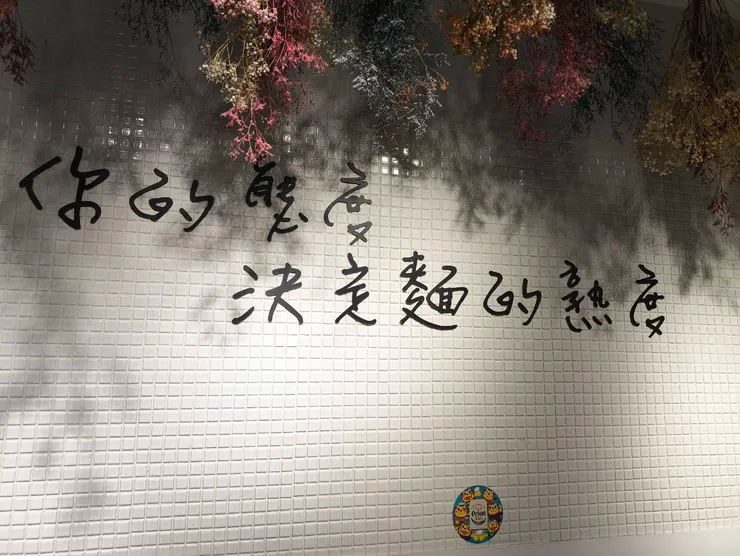 你的態度
決定麵的熟度
Orion